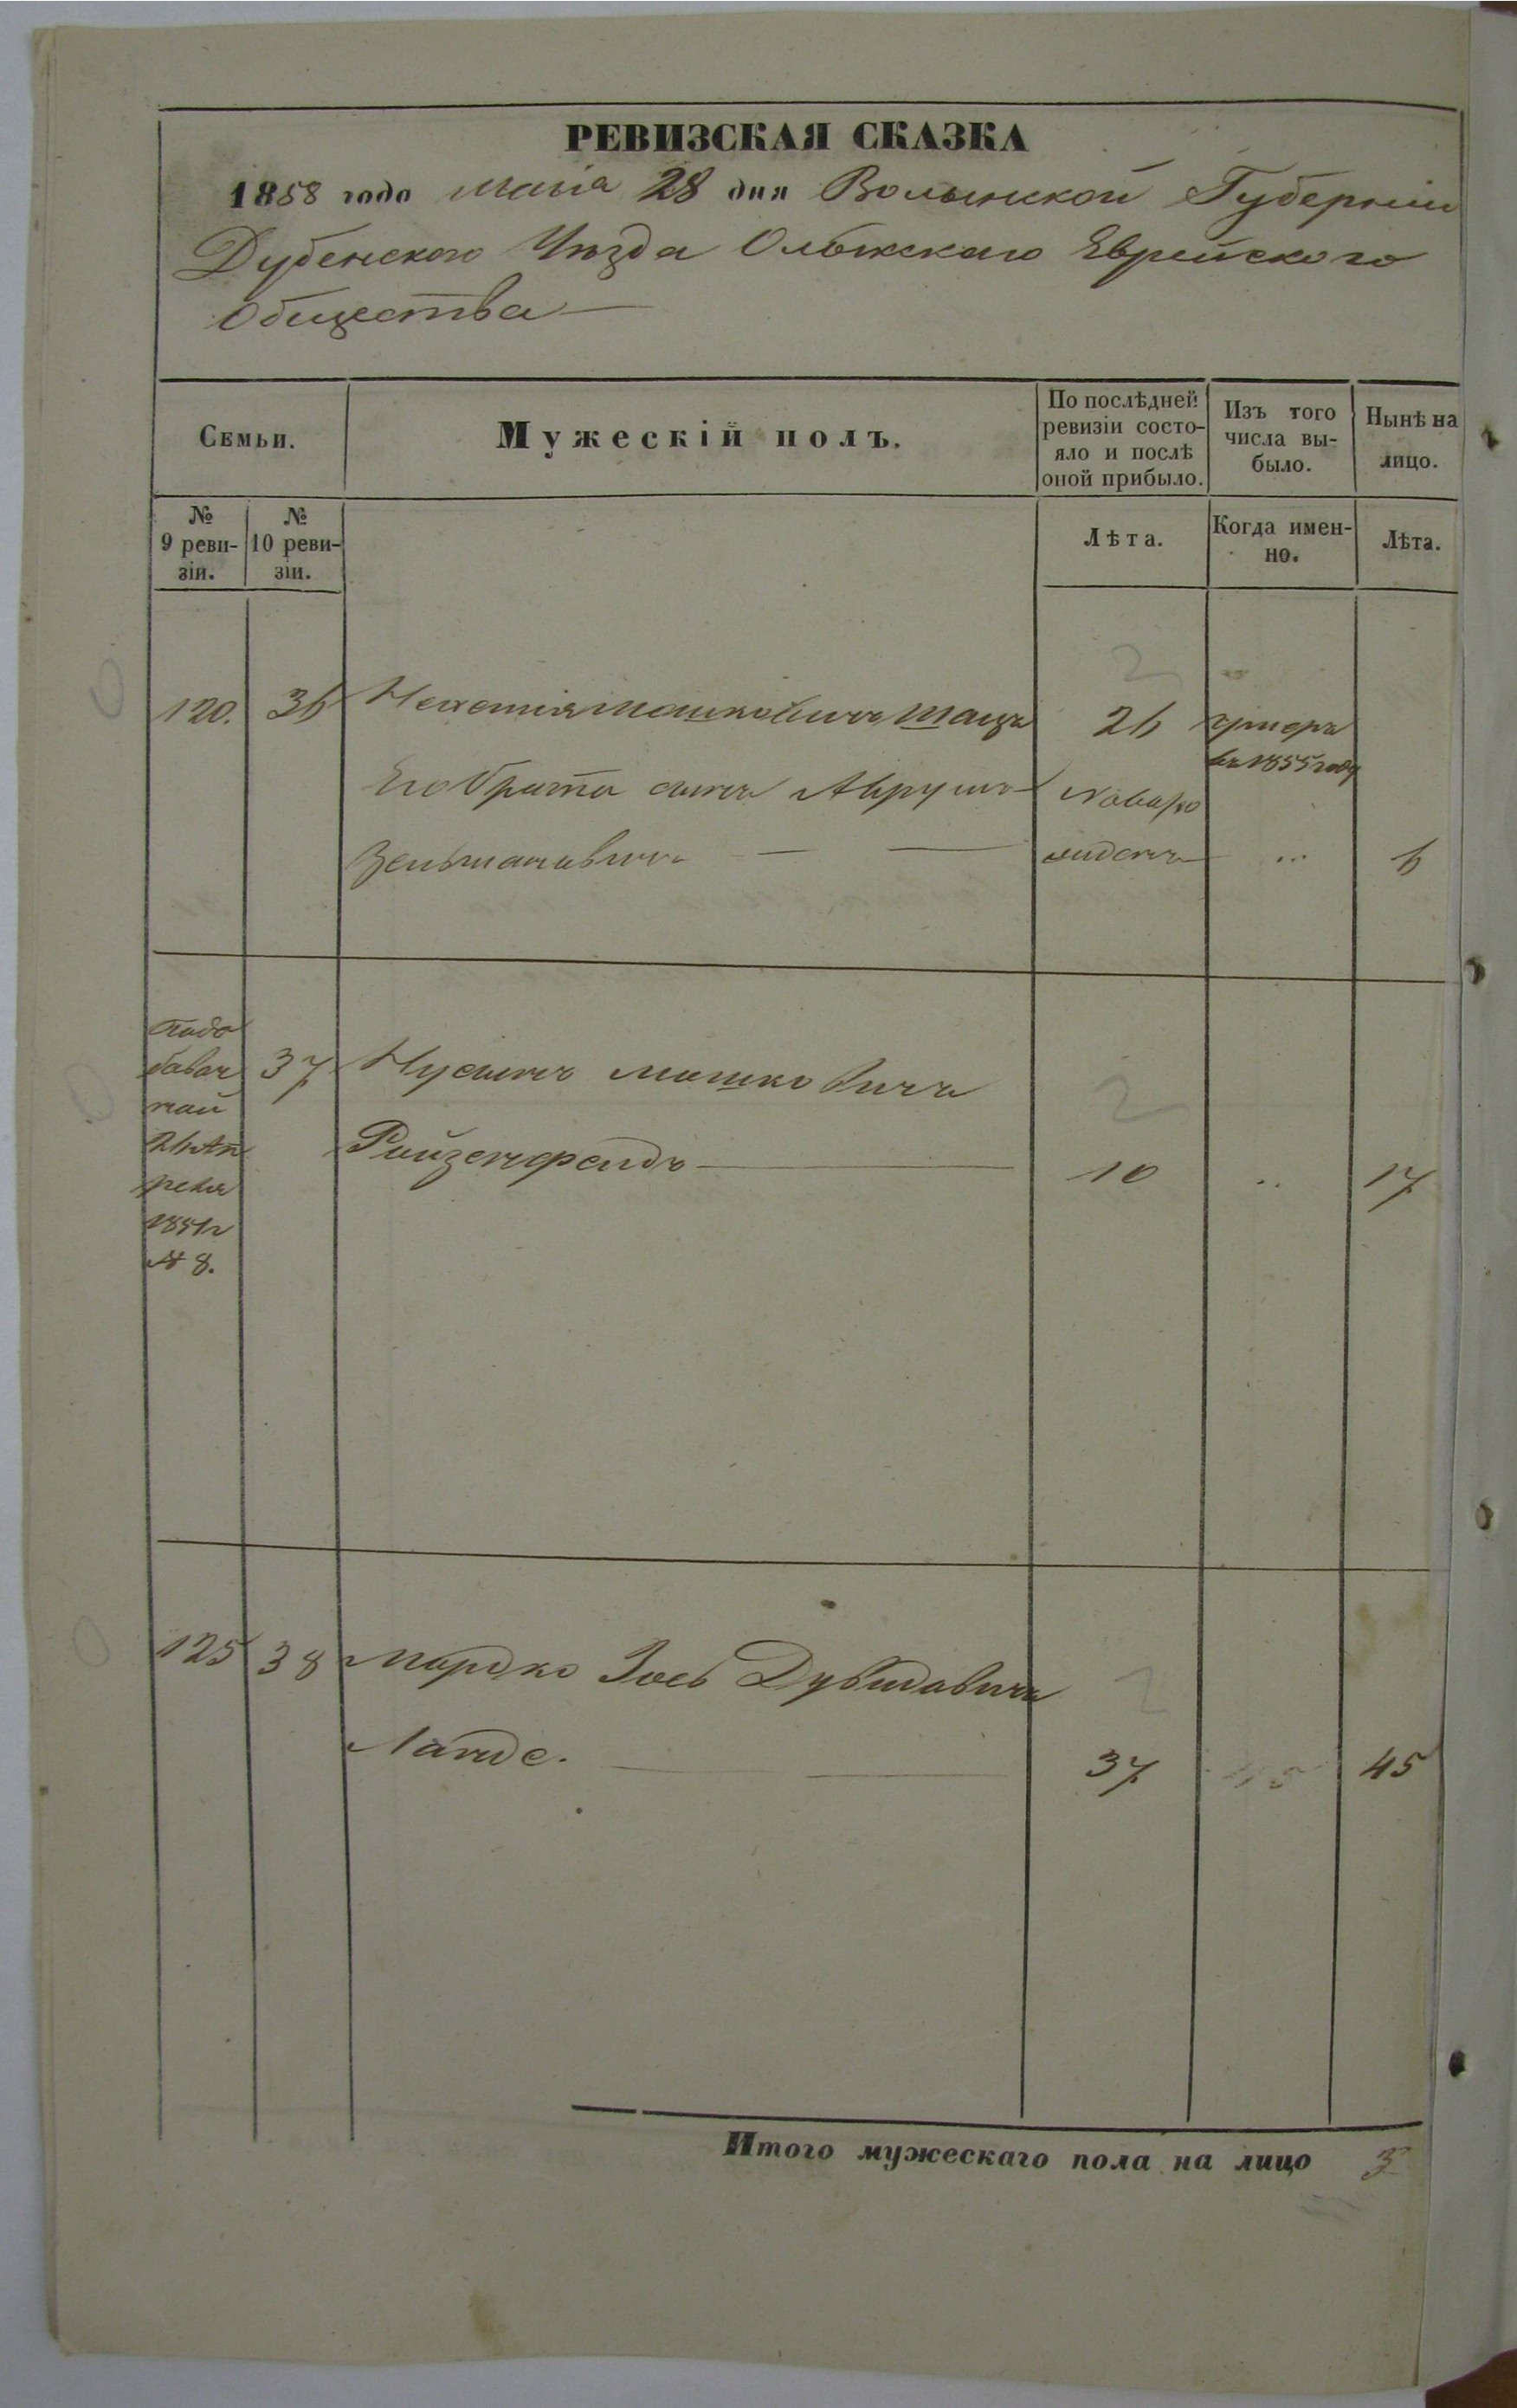 РЕВИЗСКАЯ СКАЗКА
1858 года Маія 28 дня Волынской Губерніи
Дубенскаго Уѣзда Олыкскаго Еврейскаго
Общества
Семьи.
Мужескій полъ.
По послѣдней ревизіи состо-
яло и послѣ
оной прибыло.
Изъ того
числа вы-
было.
Нынѣ на
лицо.
№
9 реви-
зіи.
№
10 реви-
зіи.
Лѣта.
Когда имен-
но.
Лѣта.
120. 36 Мошковичъ 26 умеръ
въ 1855 году
Его брата сынъ Аврумъ Новоро
Зельмановичъ жденъ 6
По до
бавоч
ной
26 Ап
реля
1851 г
№ 8.
37 Нусинъ Мошковичъ
Ройзенфельдъ 10 17
125 38 Мордко Іось Дувидовичъ
Ланде. 37 45
Итого мужескаго пола на лицо 3